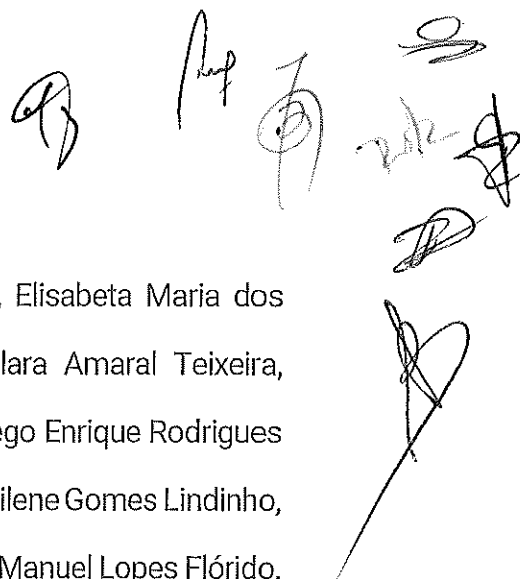 , Elisabeta Maria dos
lara Amaral Teixeira,
ego Enrique Rodrigues
ilene Gomes Lindinho,
Manuel Lopes Flórido,